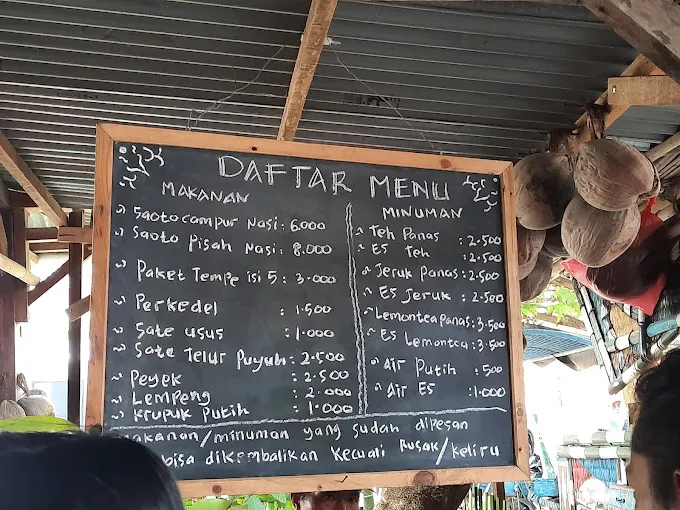 DAFTAR MENU
MAKANAN
Saoto campur Nasi : 6.000
Saoto Pisah Nasi : 8.000
Paket Tempe isi 5 : 3.000
Perkedel : 1.500
Sate usus : 1.000
Sate Telur Puyuh : 2.500
Peyek : 2.500
Lempeng : 2.000
Krupuk Putih : 1.000
MINUMAN
Teh Panas : 2.500
ES Teh : 2.500
Jeruk Panas : 2.500
ES Jeruk : 2.500
Lemontea Panas : 3.500
ES Lemontea : 3.500
Air Putih : 500
Air ES : 1.000
makanan/minuman yang sudah dipesan
bisa dikembalikan kecuali Rusak/keliru